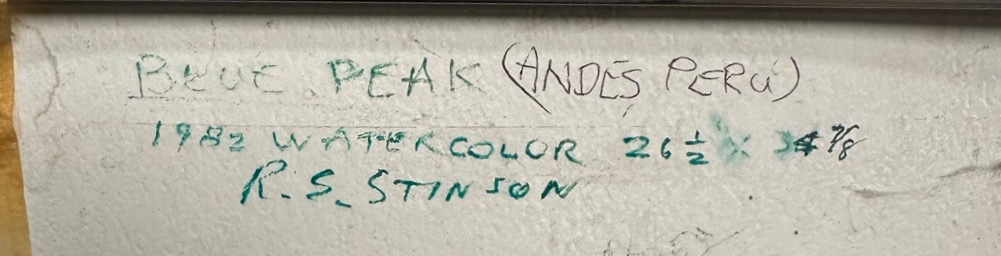 BLUE PEAK (ANDES PERU)
1982 WATERCOLOR 26 1/2 X 34 7/8
R.S. STINSON